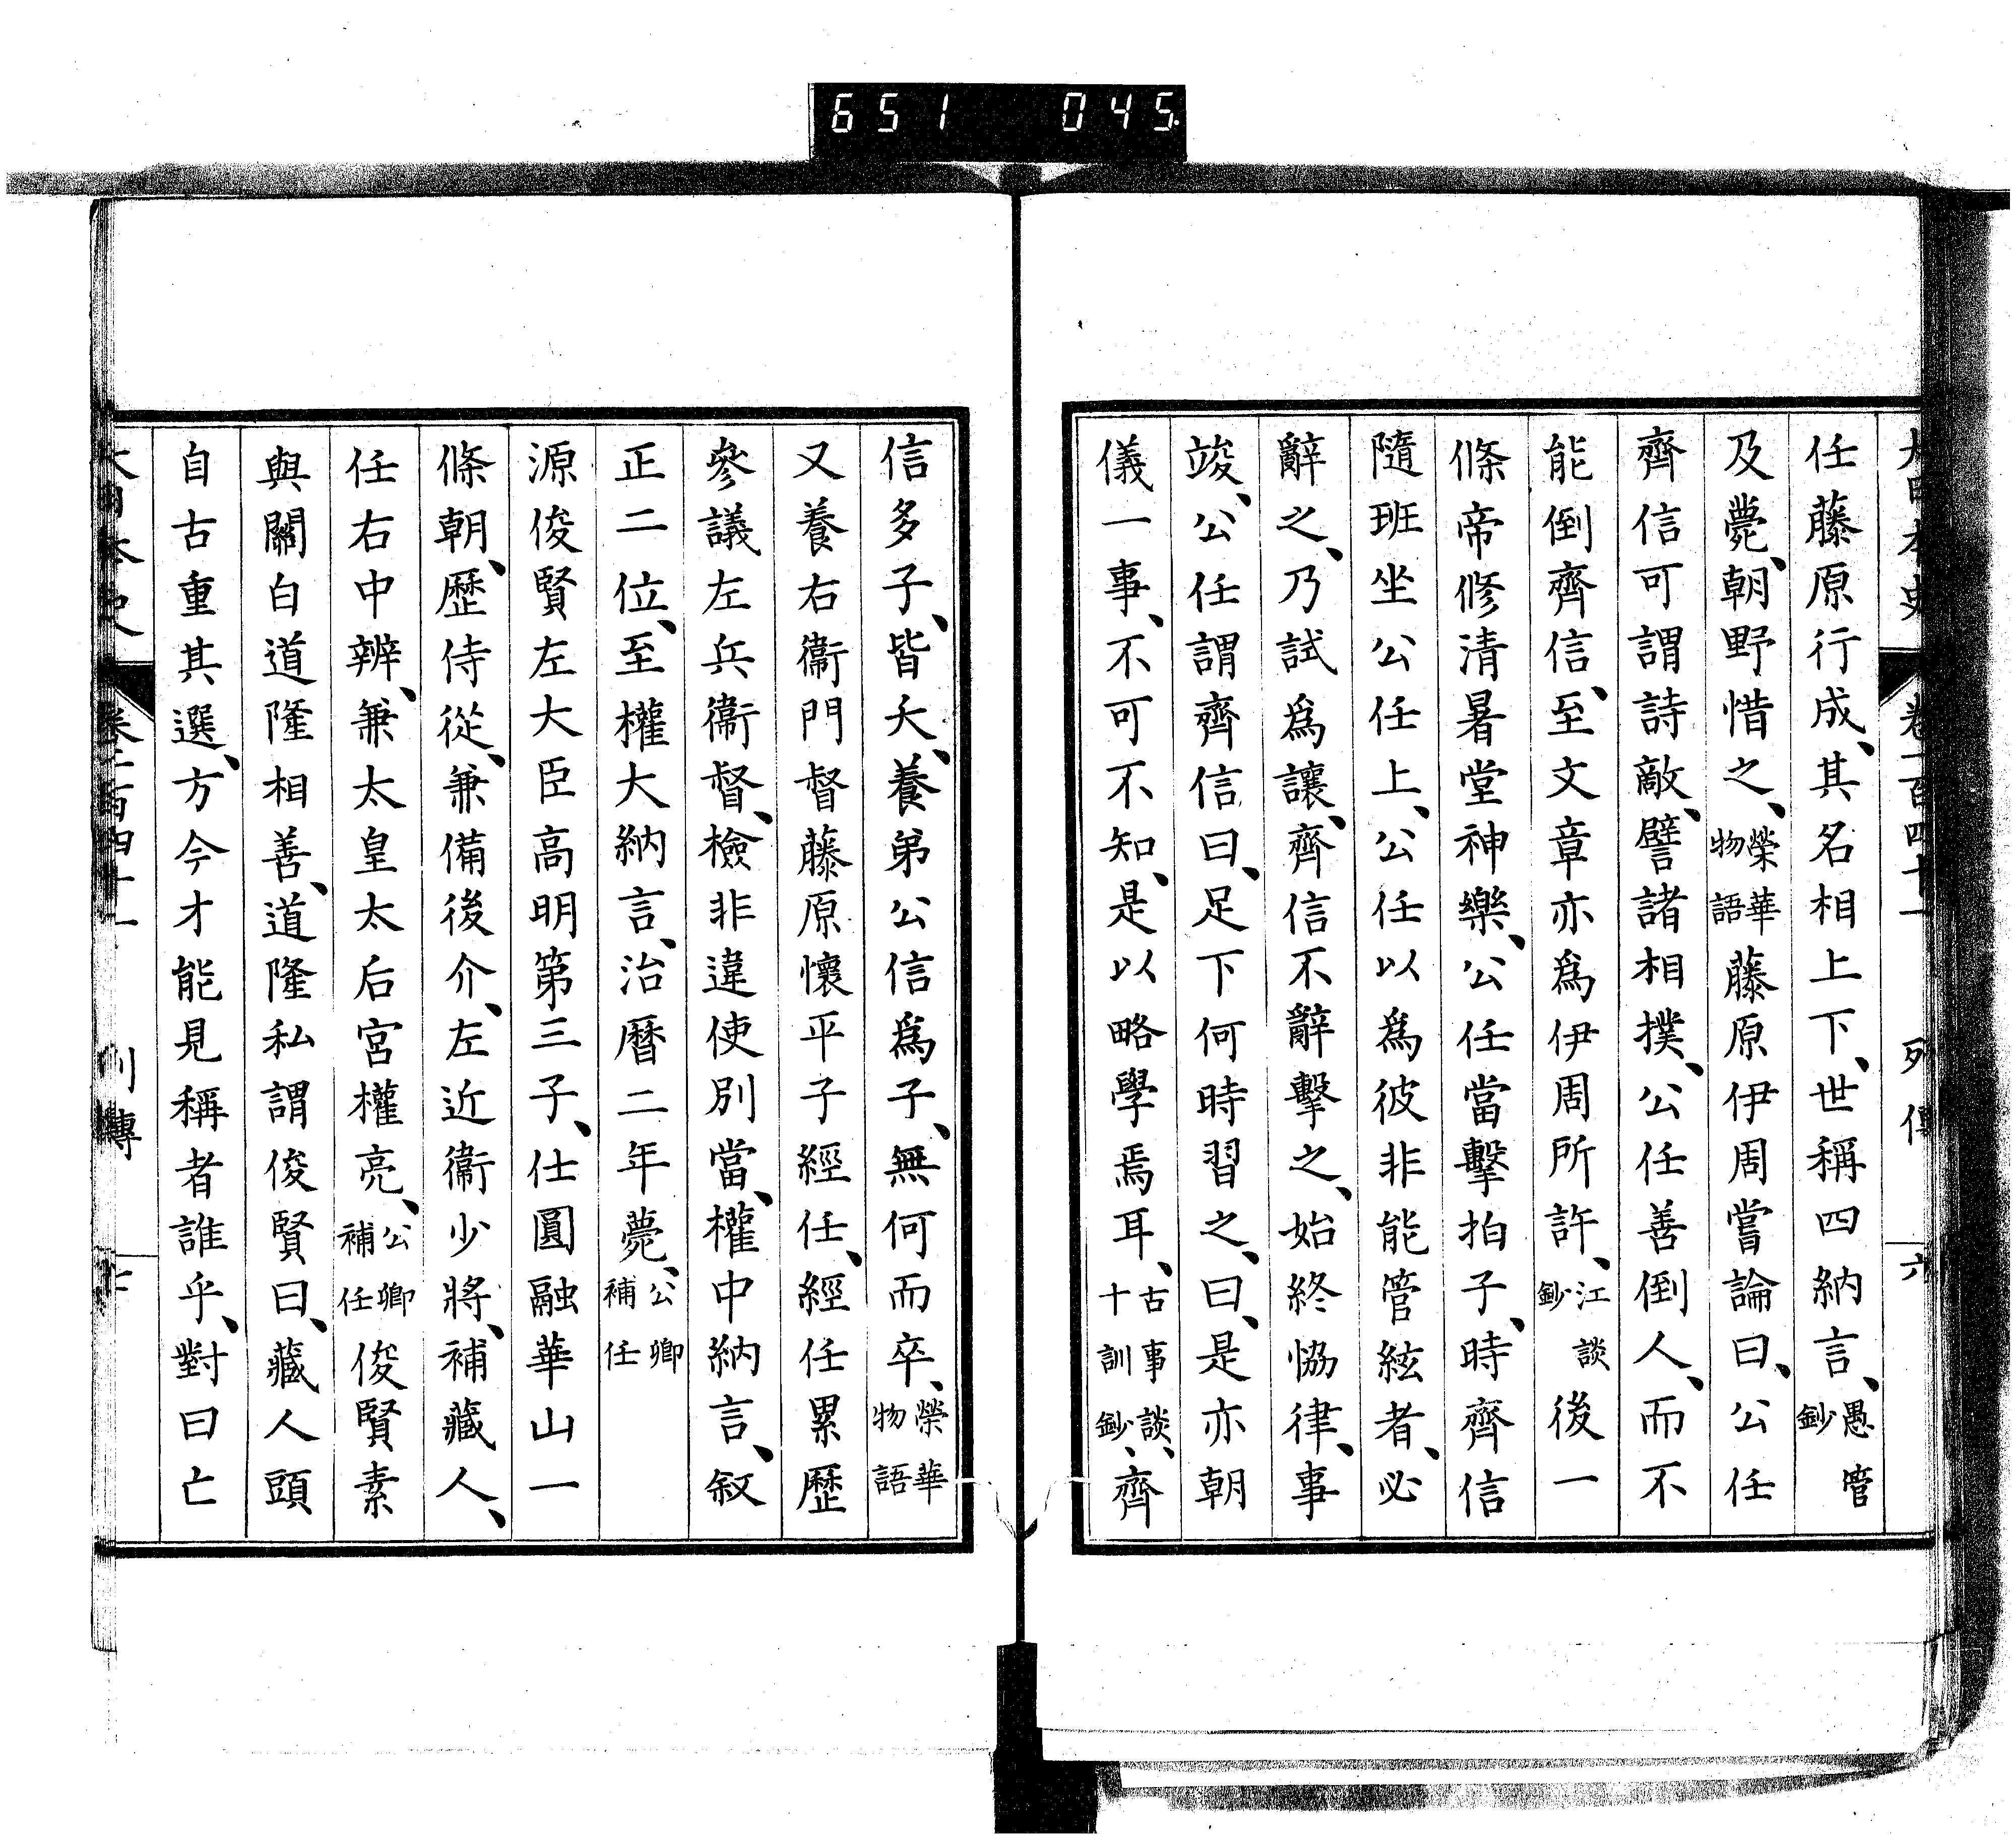 651 045
大日本史 卷一百四十一 列傳 六
任藤原行成、其名相上下、世稱四納言、愚管鈔
及薨、朝野惜之、榮華物語藤原伊周嘗論曰、公任
齊信可謂詩敵、譬諸相撲、公任善倒人、而不
能倒齊信、至文章亦爲伊周所許、江談鈔後一
條帝修清暑堂神樂、公任當擊拍子、時齊信
隨班坐公任上、公任以爲彼非能管絃者、必
辭之、乃試爲讓、齊信不辭擊之、始終協律、事
竣、公任謂齊信曰、足下何時習之、曰、是亦朝
儀一事、不可不知、是以略學焉耳、古事談、十訓鈔、齊
信多子、皆夭、養弟公信爲子、無何而卒、榮華物語
又養右衞門督藤原懷平子經任、經任累歷
參議左兵衞督、檢非違使別當、權中納言、叙
正二位、至權大納言、治曆二年薨、公卿補任
源俊賢左大臣高明第三子、仕圓融華山一
條朝、歷侍從、兼備後介、左近衞少將、補藏人、
任右中辨、兼太皇太后宮權亮、公卿補任俊賢素
與關白道隆相善、道隆私謂俊賢曰、藏人頭
自古重其選、方今才能見稱者誰乎、對曰亡
大日本史 卷一百四十一 列傳 七